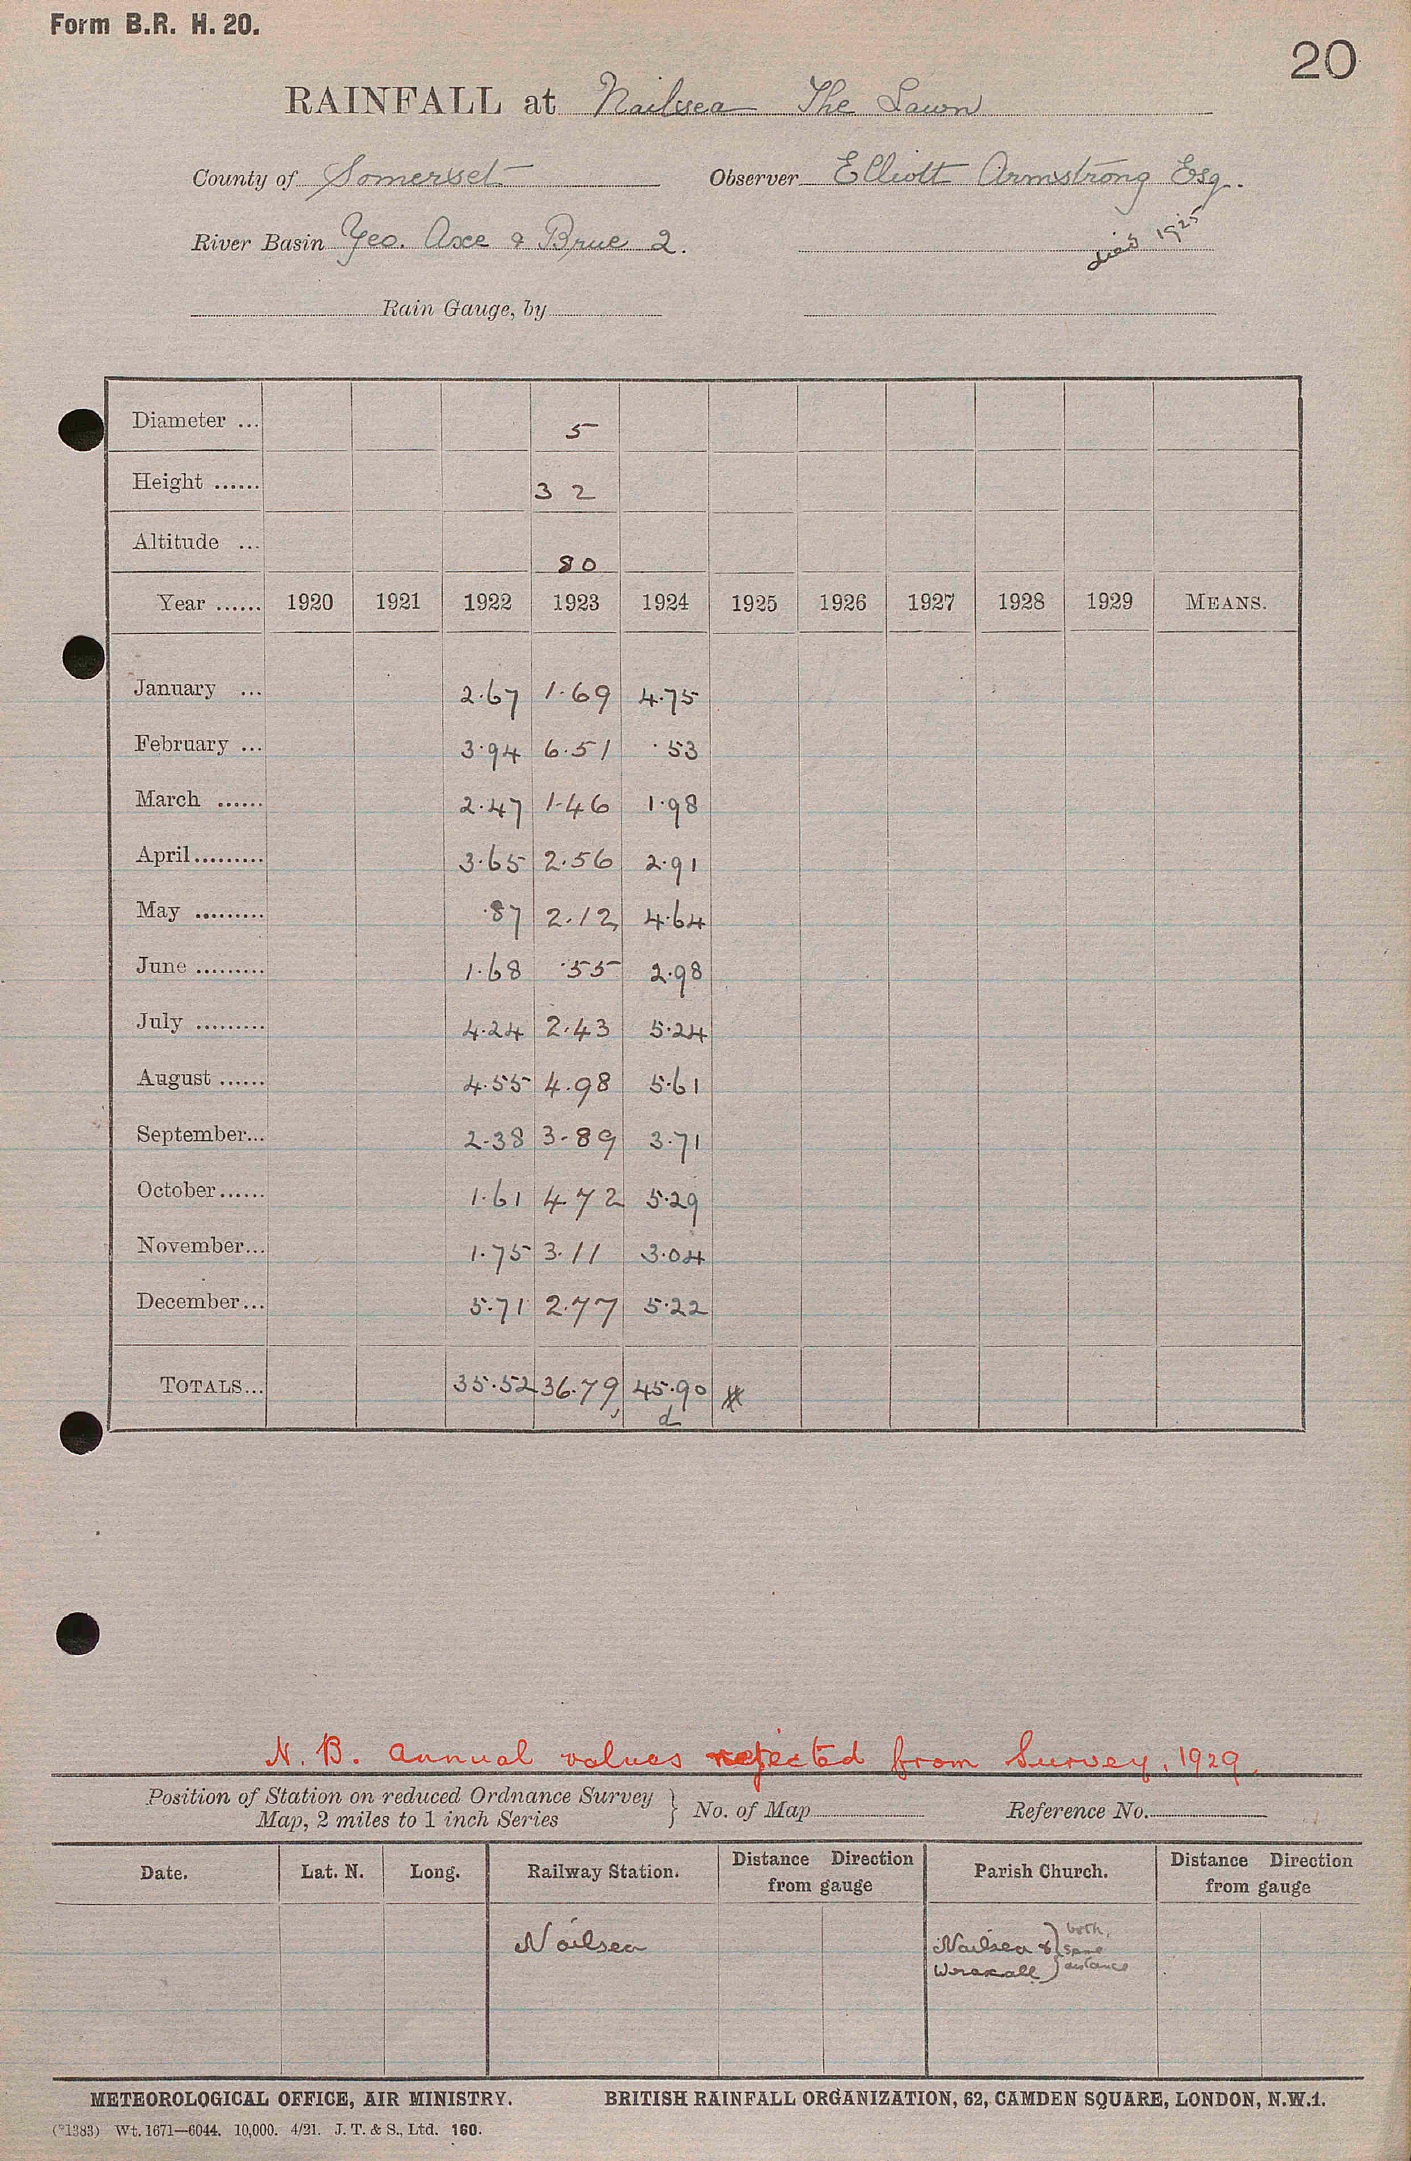 Form B.R. H. 20.
20
RAINFALL at Nailsea The Lawn
County of Somerset Observer Elliott Armstrong Esq.
River Basin Yeo. Axe & Brue 2. died 1925
Rain Gauge, by
Diameter ... 5
Height ...... 3 2
Altitude ... 80
Year ...... 1920 1921 1922 1923 1924 1925 1926 1927 1928 1929 MEANS.
January ... 2.67 1.69 4.75
February ... 3.94 6.51 .53
March ...... 2.47 1.46 1.98
April......... 3.65 2.56 2.91
May ......... .87 2.12 4.64
June ......... 1.68 .55 2.98
July ......... 4.24 2.43 5.24
August ...... 4.55 4.98 5.61
September... 2.38 3.89 3.71
October...... 1.61 4.72 5.29
November... 1.75 3.11 3.04
December... 5.71 2.77 5.22
TOTALS... 35.52 36.79 45.90
d
N.B. Annual values rejected from Survey, 1929.
Position of Station on reduced Ordnance Survey
Map, 2 miles to 1 inch Series } No. of Map Reference No.
Date. Lat. N. Long. Railway Station. Distance Direction from gauge Parish Church. Distance Direction from gauge
Nailsea Nailsea & } both,
same
Wraxall distance
METEOROLOGICAL OFFICE, AIR MINISTRY. BRITISH RAINFALL ORGANIZATION, 62, CAMDEN SQUARE, LONDON, N.W.1.
(*1383) Wt. 1671—6044. 10,000. 4/21. J. T. & S., Ltd. 160.